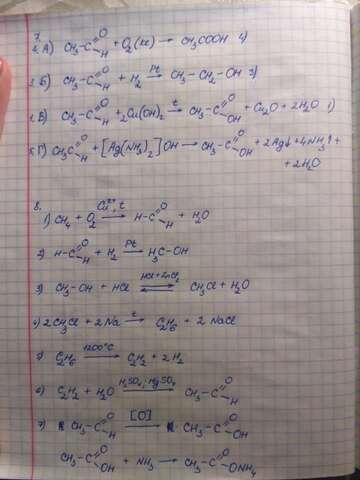 7.
2. А) CH₃-C(=O)H + O₂(кат) → CH₃COOH 4)
3. Б) CH₃-C(=O)H + H₂ –Pt→ CH₃-CH₂-OH 3)
1. В) CH₃-C(=O)H + 2Cu(OH)₂ –t→ CH₃-C(=O)OH + Cu₂O + 2H₂O 1)
Г) CH₃C(=O)H + [Ag(NH₃)₂]OH → CH₃-C(=O)OH + 2Ag↓ + 4NH₃↑ +
+ 2H₂O
8.
1) CH₄ + O₂ –t→ H-C(=O)H + H₂O
2) H-C(=O)H + H₂ –Pt→ H₃C-OH
3) CH₃-OH + HCl ⇌(HCl + ZnCl₂) CH₃Cl + H₂O
4) 2CH₃Cl + 2Na –t→ C₂H₆ + 2NaCl
5) C₂H₆ –1200°C→ C₂H₂ + 2H₂
6) C₂H₂ + H₂O –H₂SO₄, HgSO₄→ CH₃-C(=O)H
7) CH₃-C(=O)H –[O]→ CH₃-C(=O)OH
CH₃-C(=O)OH + NH₃ → CH₃-C(=O)ONH₄